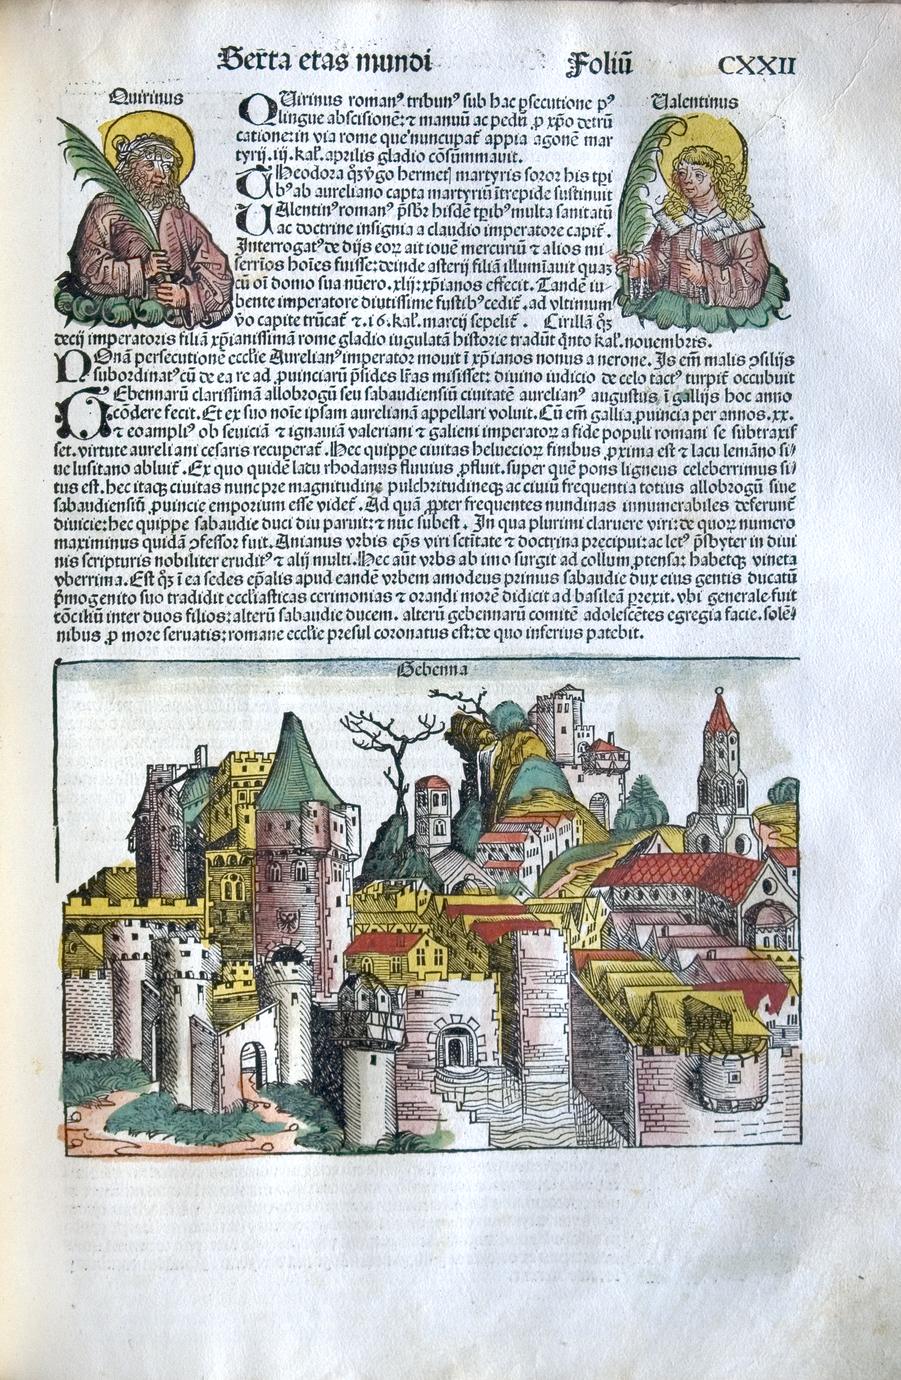 Sexta etas mundi Foliū CXXII
Quirinus
Ualentinus
QUirinus romanꝰ tribunꝰ sub hac ꝑsecutione pꝰ
lingue abscisionē: ⁊ manuū ac pedū ꝓ xp̄o detrū
cationē: in via rome que nuncupat᷑ appia agonē mar
tyrij .iij. kaƚ. aprilis gladio cōsummauit.
THeodora qꝫ v̓go hermetꝭ martyris soror his tpi
bꝰ ab aureliano capta martyriū ītrepide sustinuit
UAlentinꝰ romanꝰ p̄sbr̄ hisdē tpibꝰ multa sanitatū
ac doctrine insignia a claudio imperatore capit᷑.
Interrogatꝰ de dijs eoꝝ ait iouē mercuriū ⁊ alios mi
serrīos hoīes fuisse: deinde asterij filiā illumīauit quaꝫ
cū oī domo sua nūero .xlij: xp̄ianos effecit. Tandē iu-
bente imperatore diutissime fustibꝰ cedit᷑. ad vltimum
v̓o capite trūcat᷑ ⁊ .16. kaƚ. marcij sepelit᷑. Cirillā qꝫ
decij imperatoris filiā xp̄ianissimā rome gladio iugulatā historie tradūt qn̄to kaƚ. nouembris.
NOnā persecutionē ecclīe Aurelianꝰ imperator mouit ī xp̄ianos nonus a nerone. Is em̄ malis ↄsilijs
subordinatꝰ cū de ea re ad ꝓuinciarū p̄sides lr̄as misisset: diuino iudicio de celo tactꝰ turpit᷑ occubuit
GEbennarū clarissimā allobrogū seu sabaudiensiū ciuitatē aurelianꝰ augustus ī gallijs hoc anno
cōdere fecit. Et ex suo noīe ipsam aurelianā appellari voluit. Cū em̄ gallia ꝓuincia per annos .xx.
⁊ eo ampliꝰ ob seuiciā ⁊ ignauiā valeriani ⁊ galieni imperatoꝝ a fide populi romani se subtraxis
set. virtute aureliani cesaris recuperat᷑. Hec quippe ciuitas helueciorꝫ finibus ꝓxima est ⁊ lacu lemāno si/
ue lusitano abluit᷑. Ex quo quidē lacu rhodanus fluuius ꝓfluit. super quē pons ligneus celeberrimus si/
tus est. hec itaqꝫ ciuitas nunc pre magnitudine pulchritudineqꝫ ac ciuiū frequentia totius allobrogū siue
sabaudiensiū ꝓuincie emporium esse videt᷑. Ad quā ꝓpter frequentes nundinas innumerabiles deferunt᷑
diuicie: hec quippe sabaudie duci diu paruit: ⁊ nūc subest. In qua plurimi claruere viri: de quoꝝ numero
maximinus quidā ↄfessor fuit. Anianus vrbis ep̄s viri sctītate ⁊ doctrina precipui: ac letꝰ p̄sbyter in diui
nis scripturis nobiliter eruditꝰ ⁊ alij multi. Hec aūt vrbs ab imo surgit ad collum ꝓtensa: habetqꝫ vineta
vberrima. Est qꝫ ī ea sedes ep̄alis apud eandē vrbem amodeus primus sabaudie dux eius gentis ducatū
p̄mogenito suo tradidit ecclīasticas cerimonias ⁊ orandi morē didicit ad basileā prexit. vbi generale fuit
cōciliū inter duos filios: alterū sabaudie ducem. alterū gebennarū comitē adolescētes egregia facie. solē/
nibus ꝓ more seruatis: romane ecclīe presul coronatus est: de quo inferius patebit.
Gebenna